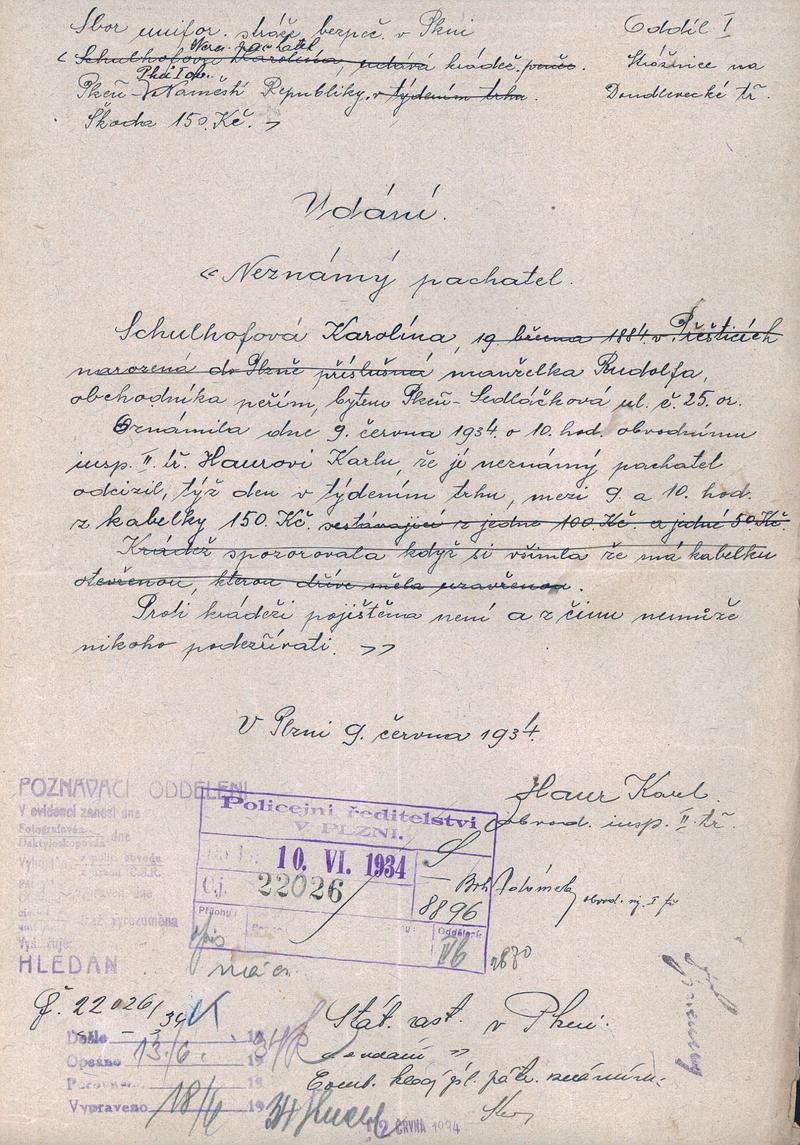 Sbor unifor. stráže bezpeč. v Plzni
Oddíl I
Nezn. pachatel
Schulhofova Karolína, udává krádež peněz.
Strážnice na
Plzeň I op.
Plzeň - V Náměstí Republiky v týdením trhu.
Doudlevecké tř.
Škoda 150 Kč.
Udání.
« Neznámý pachatel.
Schulhofová Karolína, 19. března 1884 v Přešticích
narozená do Plzně příslušná manželka Rudolfa,
obchodníka peřím, bytem Plzeň - Sedláčková ul. č. 25. or.
Oznámila dne 9. června 1934 o 10. hod. obvodnímu
insp. II. tř. Haurovi Karlu, že jí neznámý pachatel
odcizil, týž den v týdením trhu, mezi 9 a 10. hod.
z kabelky 150. Kč. sestávající z jedné 100 Kč. a jedné 50 Kč.
Krádež spozorovala když si všimla že má kabelku
otevřenou, kterou dříve měla uzavřenou.
Proti krádeži pojištěna není a z činu nemůže
nikoho podezřívati. »
V Plzni 9. června 1934.
Haur Karl.
obvod. insp. II. tř.
POZNÁVACÍ ODDĚLENÍ
V evidenci zanesl dne
Fotografován
Daktyloskopován dne
HLEDÁN
Policejní ředitelství
V PLZNI.
10. VI. 1934
Čj. 22026
8896
Přílohy:
Oddělení:
IVb
2870
Č. 22026/34
Stát. zast. v Plzni.
« udání »
Došlo 19
Opsáno 13/6. 19
Vypraveno 18/6 19 34
12 ČRVNA 1934